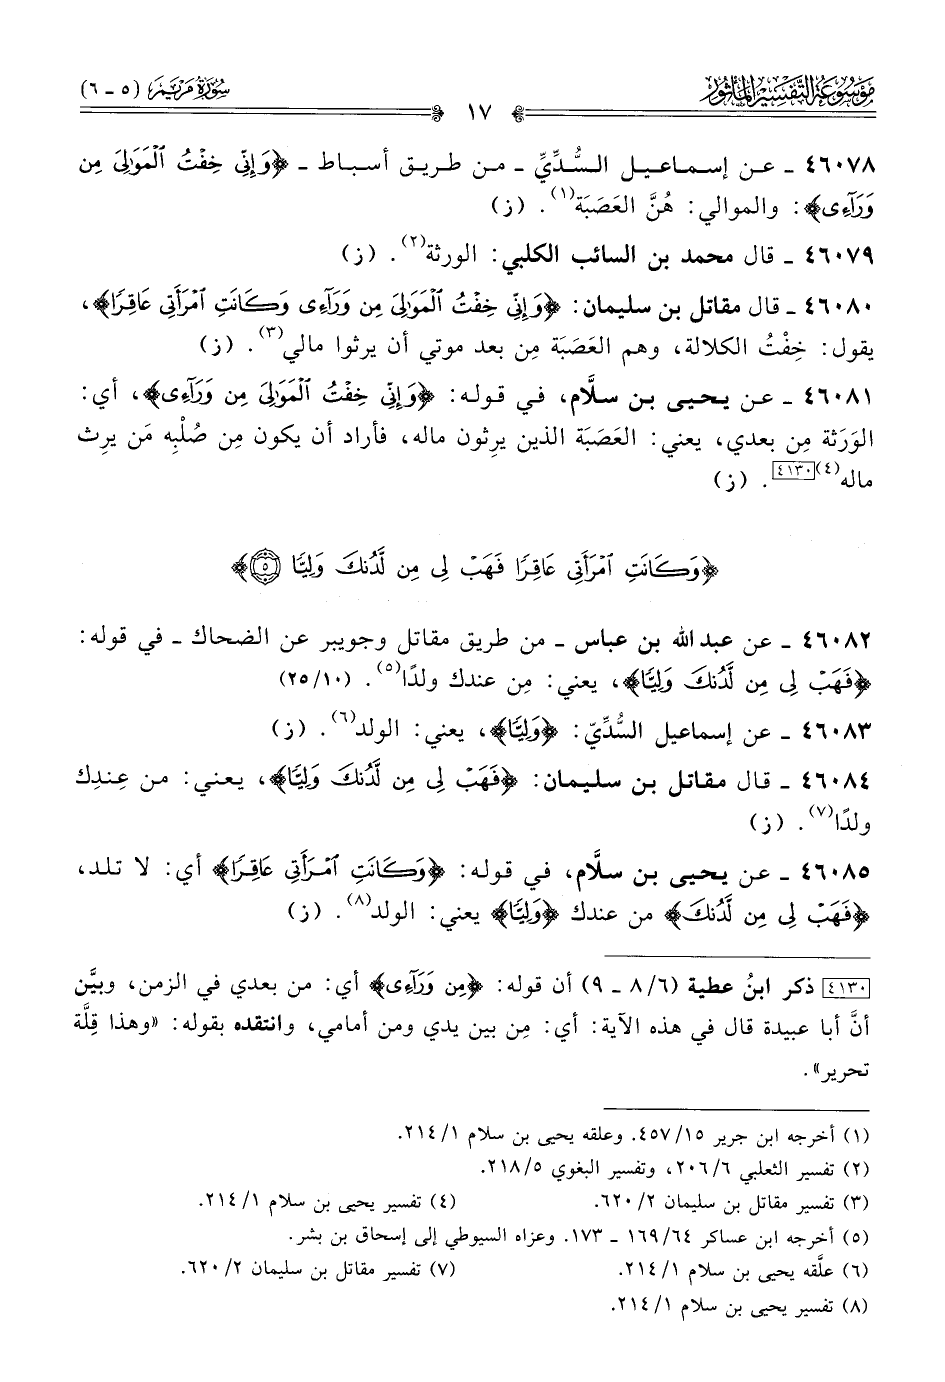 مَوْسُوعَة التَّفْسِيرِ المَأْثُور
١٧
سُورَةُ مَرْيَمَ (٥ - ٦)
٤٦٠٧٨ - عن إسماعيل السُّدِّيِّ - من طريق أسباط - ﴿وَإِنِّي خِفْتُ ٱلْمَوَٰلِيَ مِن
وَرَآءِى﴾: والموالي: هُنَّ العَصَبَة(١). (ز)
٤٦٠٧٩ - قال محمد بن السائب الكلبي: الورثة(٢). (ز)
٤٦٠٨٠ - قال مقاتل بن سليمان: ﴿وَإِنِّي خِفْتُ ٱلْمَوَٰلِيَ مِن وَرَآءِى وَكَانَتِ ٱمْرَأَتِي عَاقِرًا﴾،
يقول: خِفْتُ الكلالة، وهم العَصَبَة مِن بعد موتي أن يرثوا مالي(٣). (ز)
٤٦٠٨١ - عن يحيى بن سلَّام، في قوله: ﴿وَإِنِّي خِفْتُ ٱلْمَوَٰلِيَ مِن وَرَآءِى﴾، أي:
الوَرَثة مِن بعدي، يعني: العَصَبَة الذين يرِثون ماله، فأراد أن يكون مِن صُلْبِه مَن يرِث
ماله(٤)[٤١٣٠]. (ز)
﴿وَكَانَتِ ٱمْرَأَتِي عَاقِرًا فَهَبْ لِي مِن لَّدُنكَ وَلِيًّا ٥﴾
٤٦٠٨٢ - عن عبد الله بن عباس - من طريق مقاتل وجويبر عن الضحاك - في قوله:
﴿فَهَبْ لِي مِن لَّدُنكَ وَلِيًّا﴾، يعني: مِن عندك ولدًا(٥). (٢٥/١٠)
٤٦٠٨٣ - عن إسماعيل السُّدِّيّ: ﴿وَلِيًّا﴾، يعني: الولد(٦). (ز)
٤٦٠٨٤ - قال مقاتل بن سليمان: ﴿فَهَبْ لِي مِن لَّدُنكَ وَلِيًّا﴾، يعني: من عِندِك
ولدًا(٧). (ز)
٤٦٠٨٥ - عن يحيى بن سلَّام، في قوله: ﴿وَكَانَتِ ٱمْرَأَتِي عَاقِرًا﴾ أي: لا تلد،
﴿فَهَبْ لِي مِن لَّدُنكَ﴾ من عندك ﴿وَلِيًّا﴾ يعني: الولد(٨). (ز)
[٤١٣٠] ذكر ابنُ عطية (٨/٦ - ٩) أن قوله: ﴿مِن وَرَآءِى﴾ أي: من بعدي في الزمن، وبيَّن
أنَّ أبا عبيدة قال في هذه الآية: أي: مِن بين يدي ومن أمامي، وانتقده بقوله: «وهذا قِلَّة
تحرير».
(١) أخرجه ابن جرير ٤٥٧/١٥. وعلقه يحيى بن سلام ٢١٤/١.
(٢) تفسير الثعلبي ٢٠٦/٦، وتفسير البغوي ٢١٨/٥.
(٣) تفسير مقاتل بن سليمان ٦٢٠/٢. (٤) تفسير يحيى بن سلام ٢١٤/١.
(٥) أخرجه ابن عساكر ١٦٩/٦٤ - ١٧٣. وعزاه السيوطي إلى إسحاق بن بشر.
(٦) علَّقه يحيى بن سلام ٢١٤/١. (٧) تفسير مقاتل بن سليمان ٦٢٠/٢.
(٨) تفسير يحيى بن سلام ٢١٤/١.